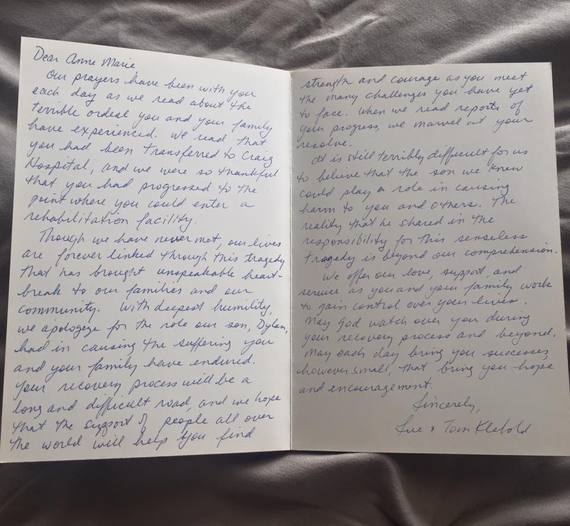 Dear Anne Marie
Our prayers have been with you
each day as we read about the
terrible ordeal you and your family
have experienced. We read that
you had been transferred to Craig
Hospital, and we were so thankful
that you had progressed to the
point where you could enter a
rehabilitation facility
Though we have never met, our lives
are forever linked through this tragedy
that has brought unspeakable heart-
break to our families and our
community. With deepest humility,
we apologize for the role our son, Dylan,
had in causing the suffering you
and your family have endured.
Your recovery process will be a
long and difficult road, and we hope
that the support of people all over
the world will help you find
strength and courage as you meet
the many challenges you have yet
to face. When we read reports of
your progress, we marvel at your
resolve.
It is still terribly difficult for us
to believe that the son we knew
could play a role in causing
harm to you and others. The
reality that he shared in the
responsibility for this senseless
tragedy is beyond our comprehension.
We offer our love, support, and
service as you and your family work
to gain control over your lives.
May God watch over you during
your recovery process and beyond.
May each day bring you successes,
however small, that bring you hope
and encouragement.
Sincerely,
Sue & Tom Klebold